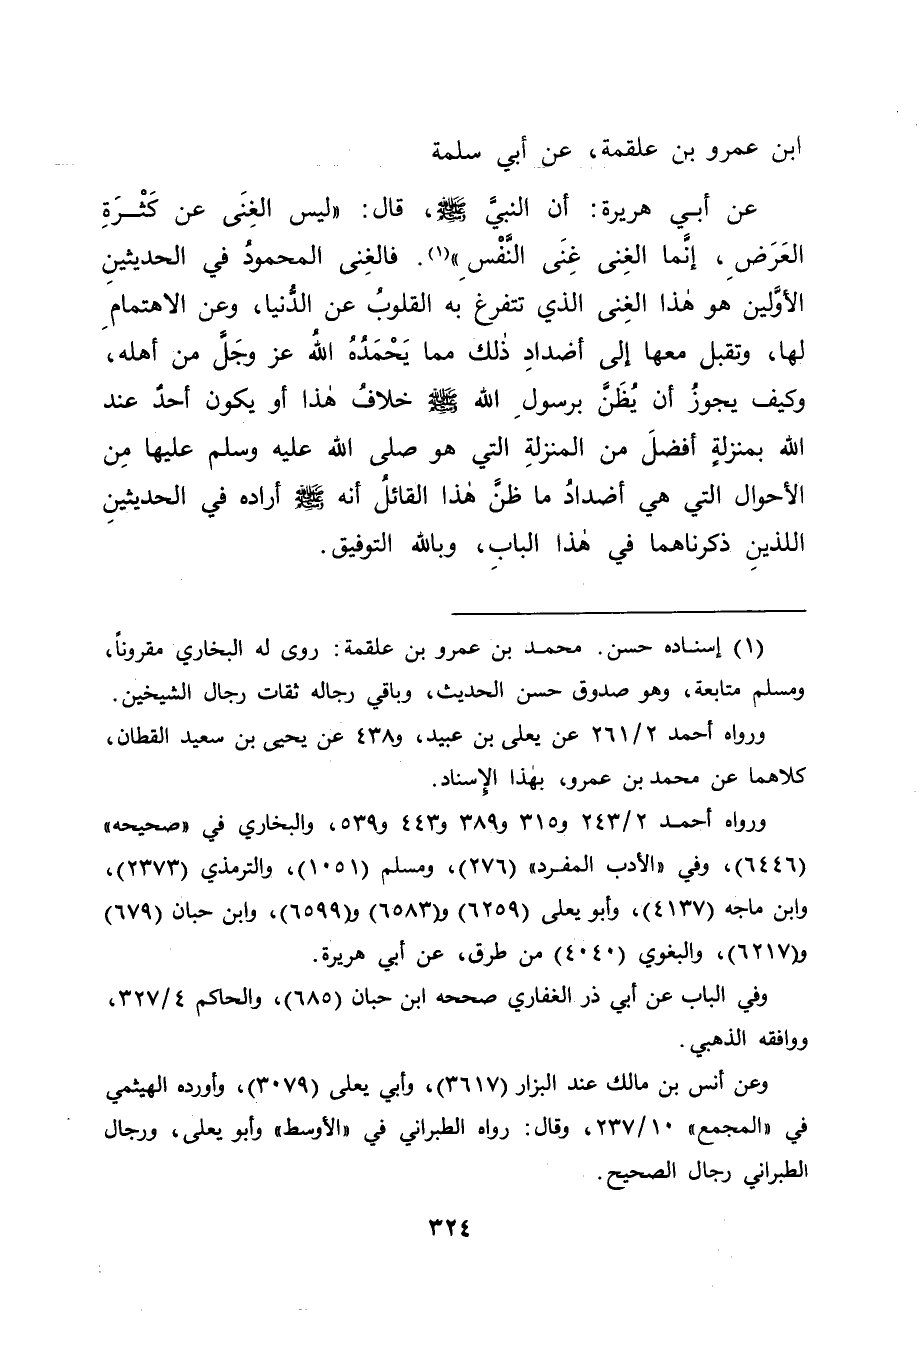 ابن عمرو بن علقمة، عن أبي سلمة
عن أبـي هريرة: أن النبيَّ ﷺ، قال: «ليس الغِنَى عن كَثْـرَةِ
العَرَضِ، إنَّما الغِنى غِنَى النَّفْسِ»(١). فالغِنى المحمودُ في الحديثينِ
الأوَّلين هو هٰذا الغِنى الذي تتفرغ به القلوبُ عن الدُّنيا، وعن الاهتمامِ
لها، وتقبل معها إلى أضدادِ ذٰلك مما يَحْمَدُهُ اللهُ عز وجَلَّ من أهله،
وكيف يجوزُ أن يُظَنَّ برسولِ الله ﷺ خلافُ هٰذا أو يكون أحدٌ عند
الله بمنزلةٍ أفضلَ من المنزلةِ التي هو صلى الله عليه وسلم عليها مِن
الأحوال التي هي أضدادُ ما ظنَّ هٰذا القائلُ أنه ﷺ أراده في الحديثينِ
اللذينِ ذكرناهما في هٰذا البابِ، وبالله التوفيق.
(١) إسنـاده حسن. محمـد بن عمرو بن علقمة: روى له البخاري مقروناً،
ومسلم متابعة، وهو صدوق حسن الحديث، وباقي رجاله ثقات رجال الشيخين.
ورواه أحمد ٢٦١/٢ عن يعلى بن عبيد، و٤٣٨ عن يحيى بن سعيد القطان،
كلاهما عن محمد بن عمرو، بهٰذا الإِسناد.
ورواه أحمـد ٢٤٣/٢ و٣١٥ و٣٨٩ و٤٤٣ و٥٣٩، والبخاري في «صحيحه»
(٦٤٤٦)، وفي «الأدب المفـرد» (٢٧٦)، ومسلم (١٠٥١)، والترمذي (٢٣٧٣)،
وابن ماجه (٤١٣٧)، وأبو يعلى (٦٢٥٩) و(٦٥٨٣) و(٦٥٩٩)، وابن حبان (٦٧٩)
و(٦٢١٧)، والبغوي (٤٠٤٠) من طرق، عن أبي هريرة.
وفي الباب عن أبي ذر الغفاري صححه ابن حبان (٦٨٥)، والحاكم ٣٢٧/٤،
ووافقه الذهبي.
وعن أنس بن مالك عند البزار (٣٦١٧)، وأبي يعلى (٣٠٧٩)، وأورده الهيثمي
في «المجمع» ٢٣٧/١٠، وقال: رواه الطبراني في «الأوسط» وأبو يعلى، ورجال
الطبراني رجال الصحيح.
٣٢٤